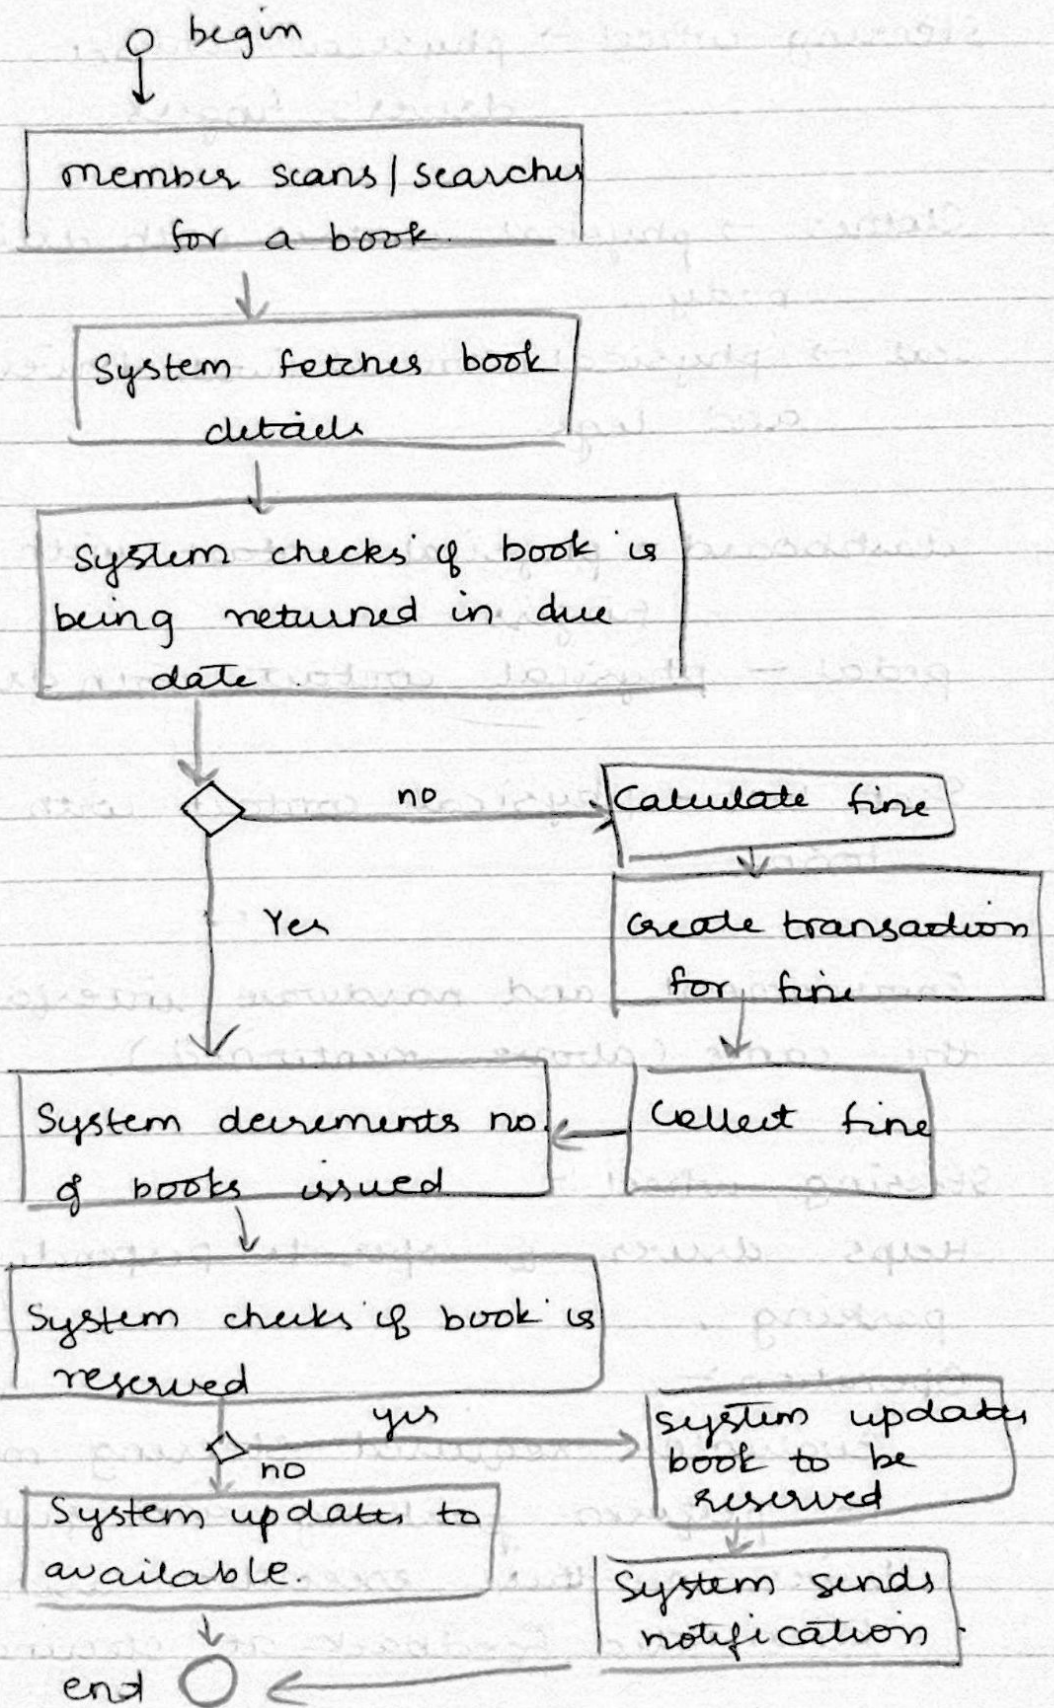 begin
member scans/searches
for a book.
System fetches book
details
System checks if book is
being returned in due
date.
no
Calculate fine
Yes
Create transaction
for fine
System decrements no.
of books issued
Collect fine
System checks if book is
reserved
yes
System updates
book to be
reserved
no
System updates to
available.
System sends
notification.
end